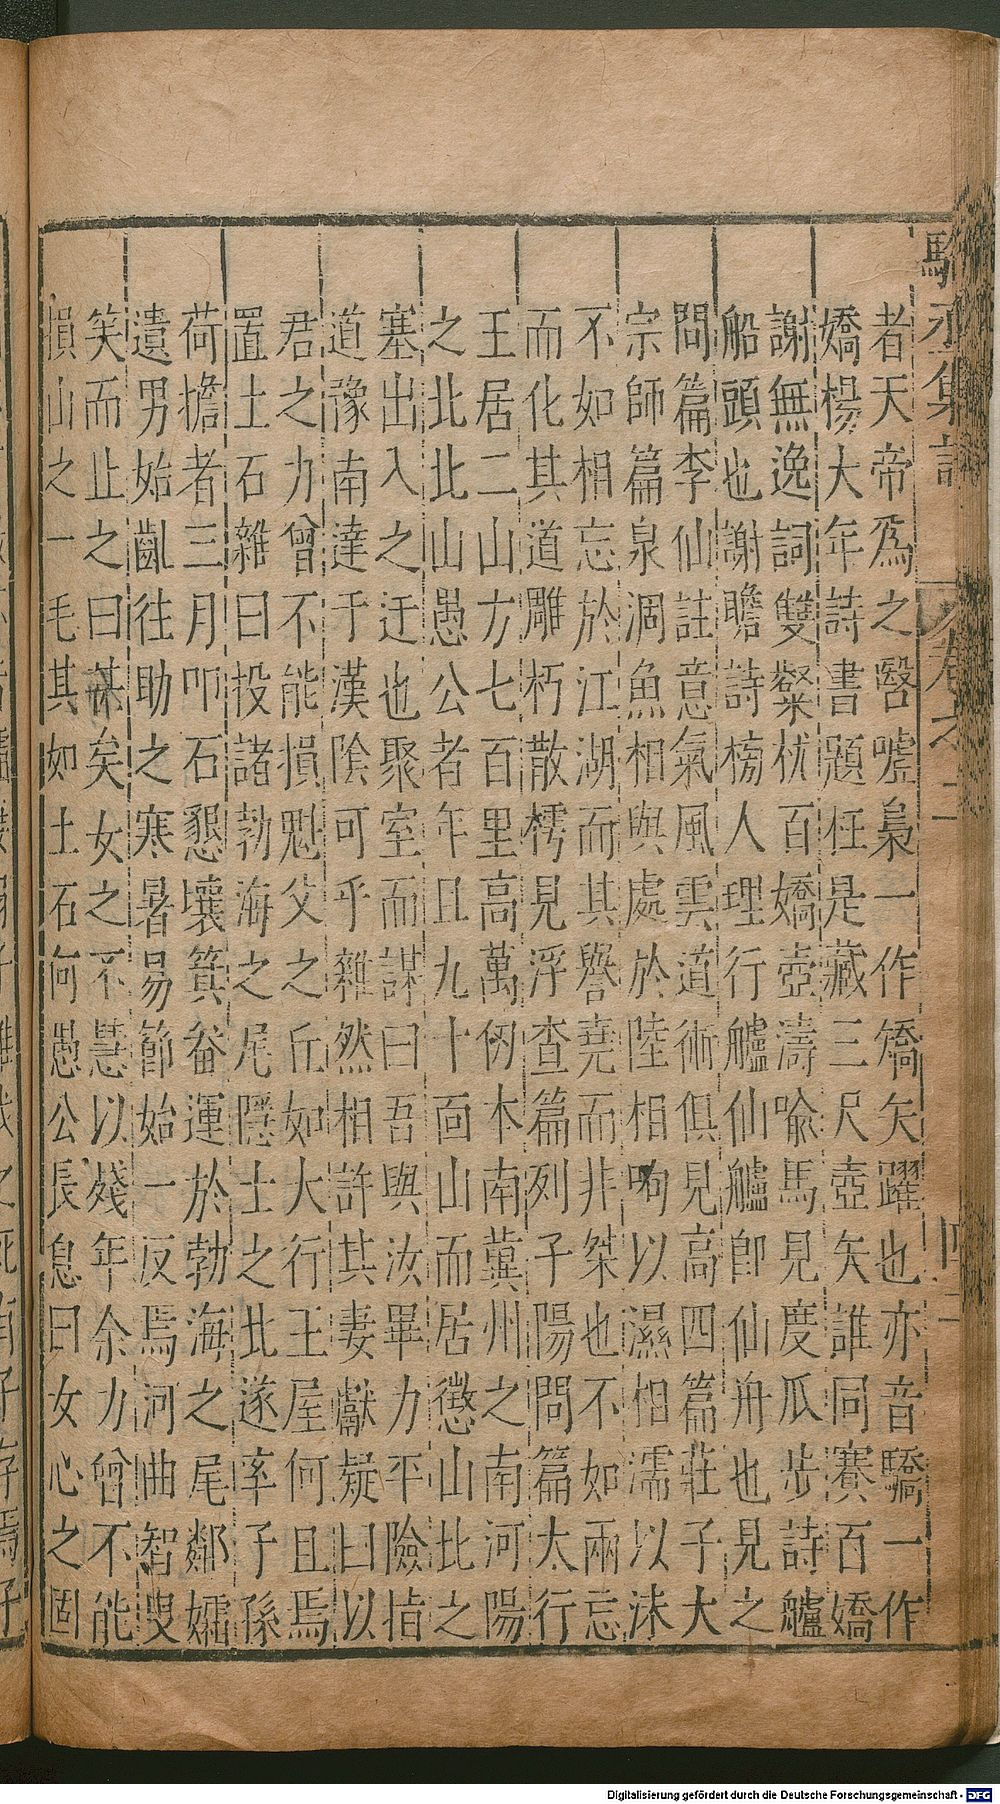 者天帝爲之醫噓梟一作矯矢躍也亦音驕一作
嬌楊大年詩書題任是藏三尺壺矢誰同賽百嬌
謝無逸詞雙粲枕百嬌壺濤喩馬見度瓜步詩艫
船頭也謝瞻詩榜人理行艫仙艫卽仙舟也見之
問篇李仙註意氣風雲道術俱見高四篇莊子大
宗師篇泉涸魚相與處於陸相呴以濕相濡以沫
不如相忘於江湖而其譽堯而非桀也不如兩忘
而化其道雕朽散樗見浮查篇列子陽問篇太行
王居二山方七百里高萬仞本南冀州之南河陽
之北北山愚公者年且九十面山而居懲山北之
塞出入之迂也聚室而謀曰吾與汝畢力平險指
道豫南達于漢陰可乎雜然相許其妻獻疑曰以
君之力曾不能損魁父之丘如大行王屋何且焉
置土石雜曰投諸勃海之尾隱土之北遂率子孫
荷擔者三月叩石懇壤箕畚運於勃海之尾鄰孀
遺男始齔往助之寒暑易節始一反焉河曲智叟
笑而止之曰甚矣女之不慧以殘年余力曾不能
損山之一毛其如土石何愚公長息曰女心之固